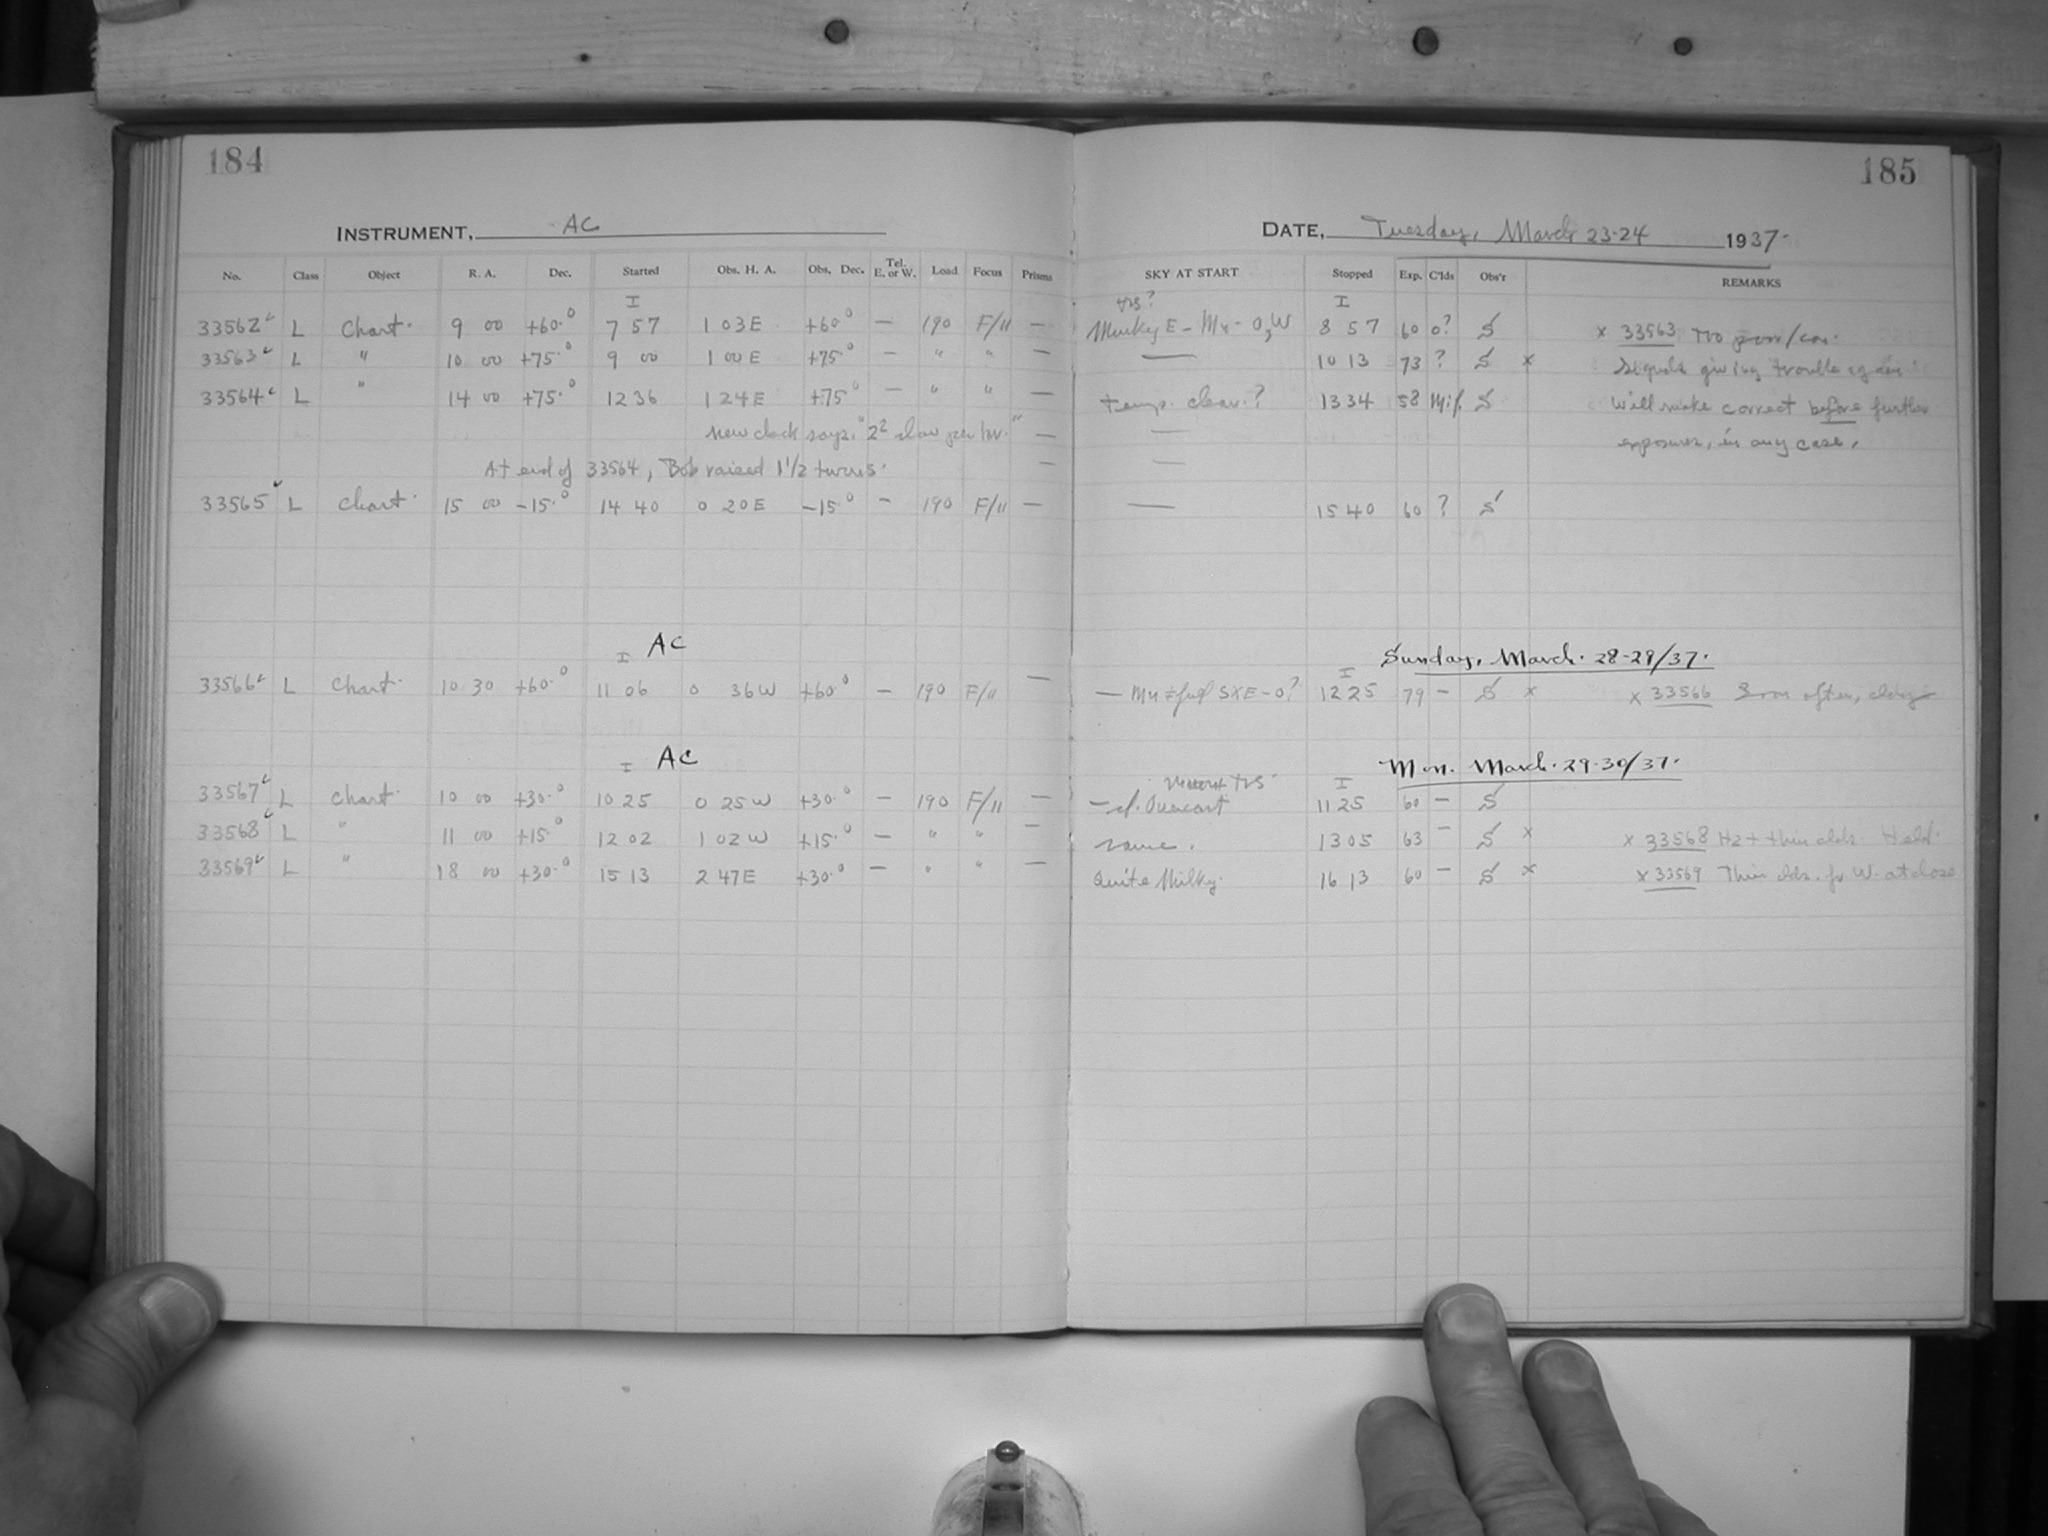 184
185
INSTRUMENT, AC
DATE, Tuesday, March 23-24 1937.
No. Class Object R. A. Dec. Started Obs. H. A. Obs. Dec. Tel. E. or W. Load Focus Prisms SKY AT START Stopped Exp. C'lds Obs'r REMARKS
I I
33562 L Chart. 9 00 +60.° 7 57 1 03 E +60° — 190 F/11 — Murky E - 8 57 60 0? S x 33563 Too
33563 L " 10 00 +75.° 9 00 1 00 E +75° — " " — — 10 13 73 ? S x Signals giving trouble again
33564 L " 14 00 +75.° 12 36 1 24 E +75° — " " — temp. clear.? 13 34 58 S Will make correct before further
New clock says, "2² slow per hr." — — exposures, in any case.
At end of 33564, Bob raised 1 1/2 turns. — —
33565 L Chart 15 00 -15.° 14 40 0 20 E -15.° — 190 F/11 — — 15 40 60 ? S
AC
Sunday, March. 28-29/37.
I I
33566 L Chart. 10 30 +60.° 11 06 0 36 W +60.° — 190 F/11 — 12 25 79 — S x x 33566
AC
Mon. March. 29-30/37.
I I
33567 L Chart. 10 00 +30.° 10 25 0 25 W +30.° — 190 F/11 — Overcast 11 25 60 — S
33568 L " 11 00 +15.° 12 02 1 02 W +15.° — " " — same. 13 05 63 — S x x 33568 Hz + thin clds.
33569 L " 18 00 +30.° 15 13 2 47 E +30.° — " " — Quite Milky. 16 13 60 — S x x 33569 Thin clds. W. at close